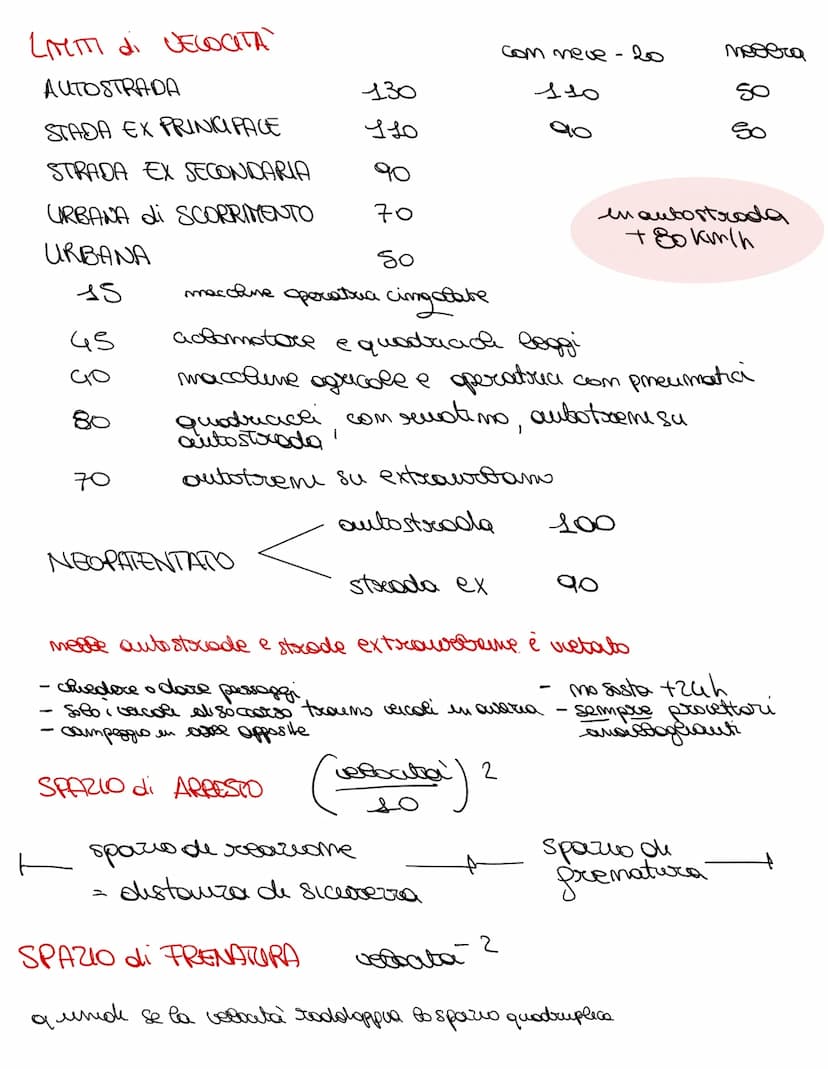 LIMITI di VELOCITÀ con neve - 20 nebbia
AUTOSTRADA 130 110 50
STADA EX PRINCIPALE 110 90 50
STRADA EX SECONDARIA 90
URBANA di SCORRIMENTO 70
in autostrada
+ 80 km/h
URBANA 50
15 macchine operatrici cingolate
45 ciclomotore e quadricicli leggi
40 macchine agricole e operatrici con pneumatici
80 quadricicli, con semotimo, autotreni su
autostrada
70 autotreni su extraurbano
NEOPATENTATO
autostrada 100
strada ex 90
nelle autostrade e strade extraurbane è vietato
- chiedere o dare passaggi - no sosta +24h
- solo i veicoli di soccorso traino veicoli in avaria - sempre proiettori
- campeggio in aree apposite anabbaglianti
SPAZIO di ARRESTO (velocità / 10) 2
spazio di reazione spazio di
= distanza di sicurezza frenatura
SPAZIO di FRENATURA velocità 2
quindi se la velocità raddoppia lo spazio quadruplica